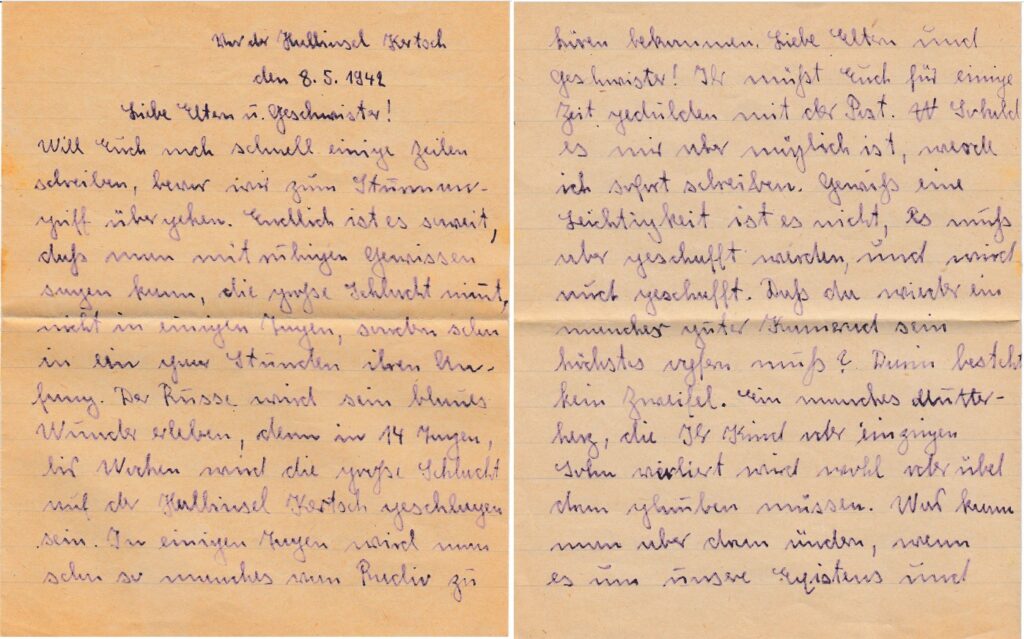 Vor der Halbinsel Kertsch
den 8.5.1942
Liebe Eltern u. Geschwister!
Will Euch noch schnell einige Zeilen
schreiben, bevor wir zum Sturman-
griff übergehen. Endlich ist es soweit,
daß man mit ruhigen Gewissen
sagen kann, die große Schlacht nimt,
nicht in einigen Tagen, sondern schon
in ein paar Stunden ihren An-
fang. Der Russe wird sein blaues
Wunder erleben, denn in 14 Tagen,
bis Wochen wird die große Schlacht
auf der Halbinsel Kertsch geschlagen
sein. In einigen Tagen wird man
schon so manches vom Radio zu
hören bekommen. Liebe Eltern und
Geschwister! Ihr müßt Euch für einige
Zeit gedulden mit der Post. Sobald
es mir aber möglich ist, werde
ich sofort schreiben. Gewiß eine
Leichtigkeit ist es nicht, Es muß
aber geschafft werden, und wird
auch geschafft. Daß da wieder ein
mancher guter Kamerad sein
höchstes opfern muß? Darin besteht
kein Zweifel. Ein manches Mutter-
herz, die Ihr Kind oder einzigen
Sohn verliert wird wohl oder übel
dran glauben müssen. Was kann
man aber dran ändern, wenn
es um unsere Existens und